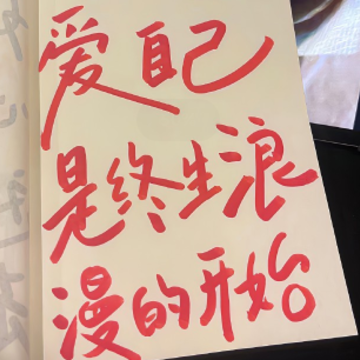 爱自己
是终生浪
漫的开始